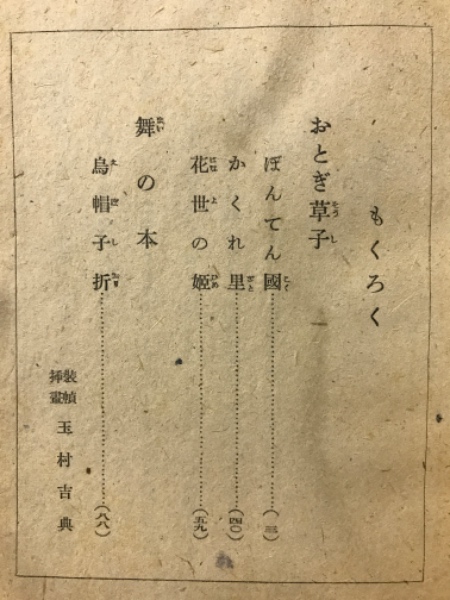 もくろく
おとぎ草子
ぼんてん國……(三)
かくれ里……(四〇)
花世の姫……(五九)
舞の本
烏帽子折……(八八)
裝幀
挿畫
玉村吉典